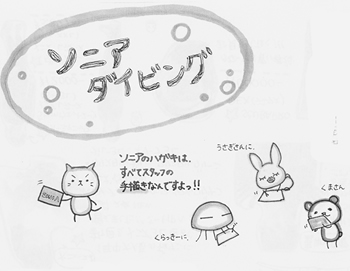 ソニア
ダイビング
ソニアのハガキは、
すべてスタッフの
手描きなんですよっ!!
うさぎさんに、
くまさん
くらっきーに、